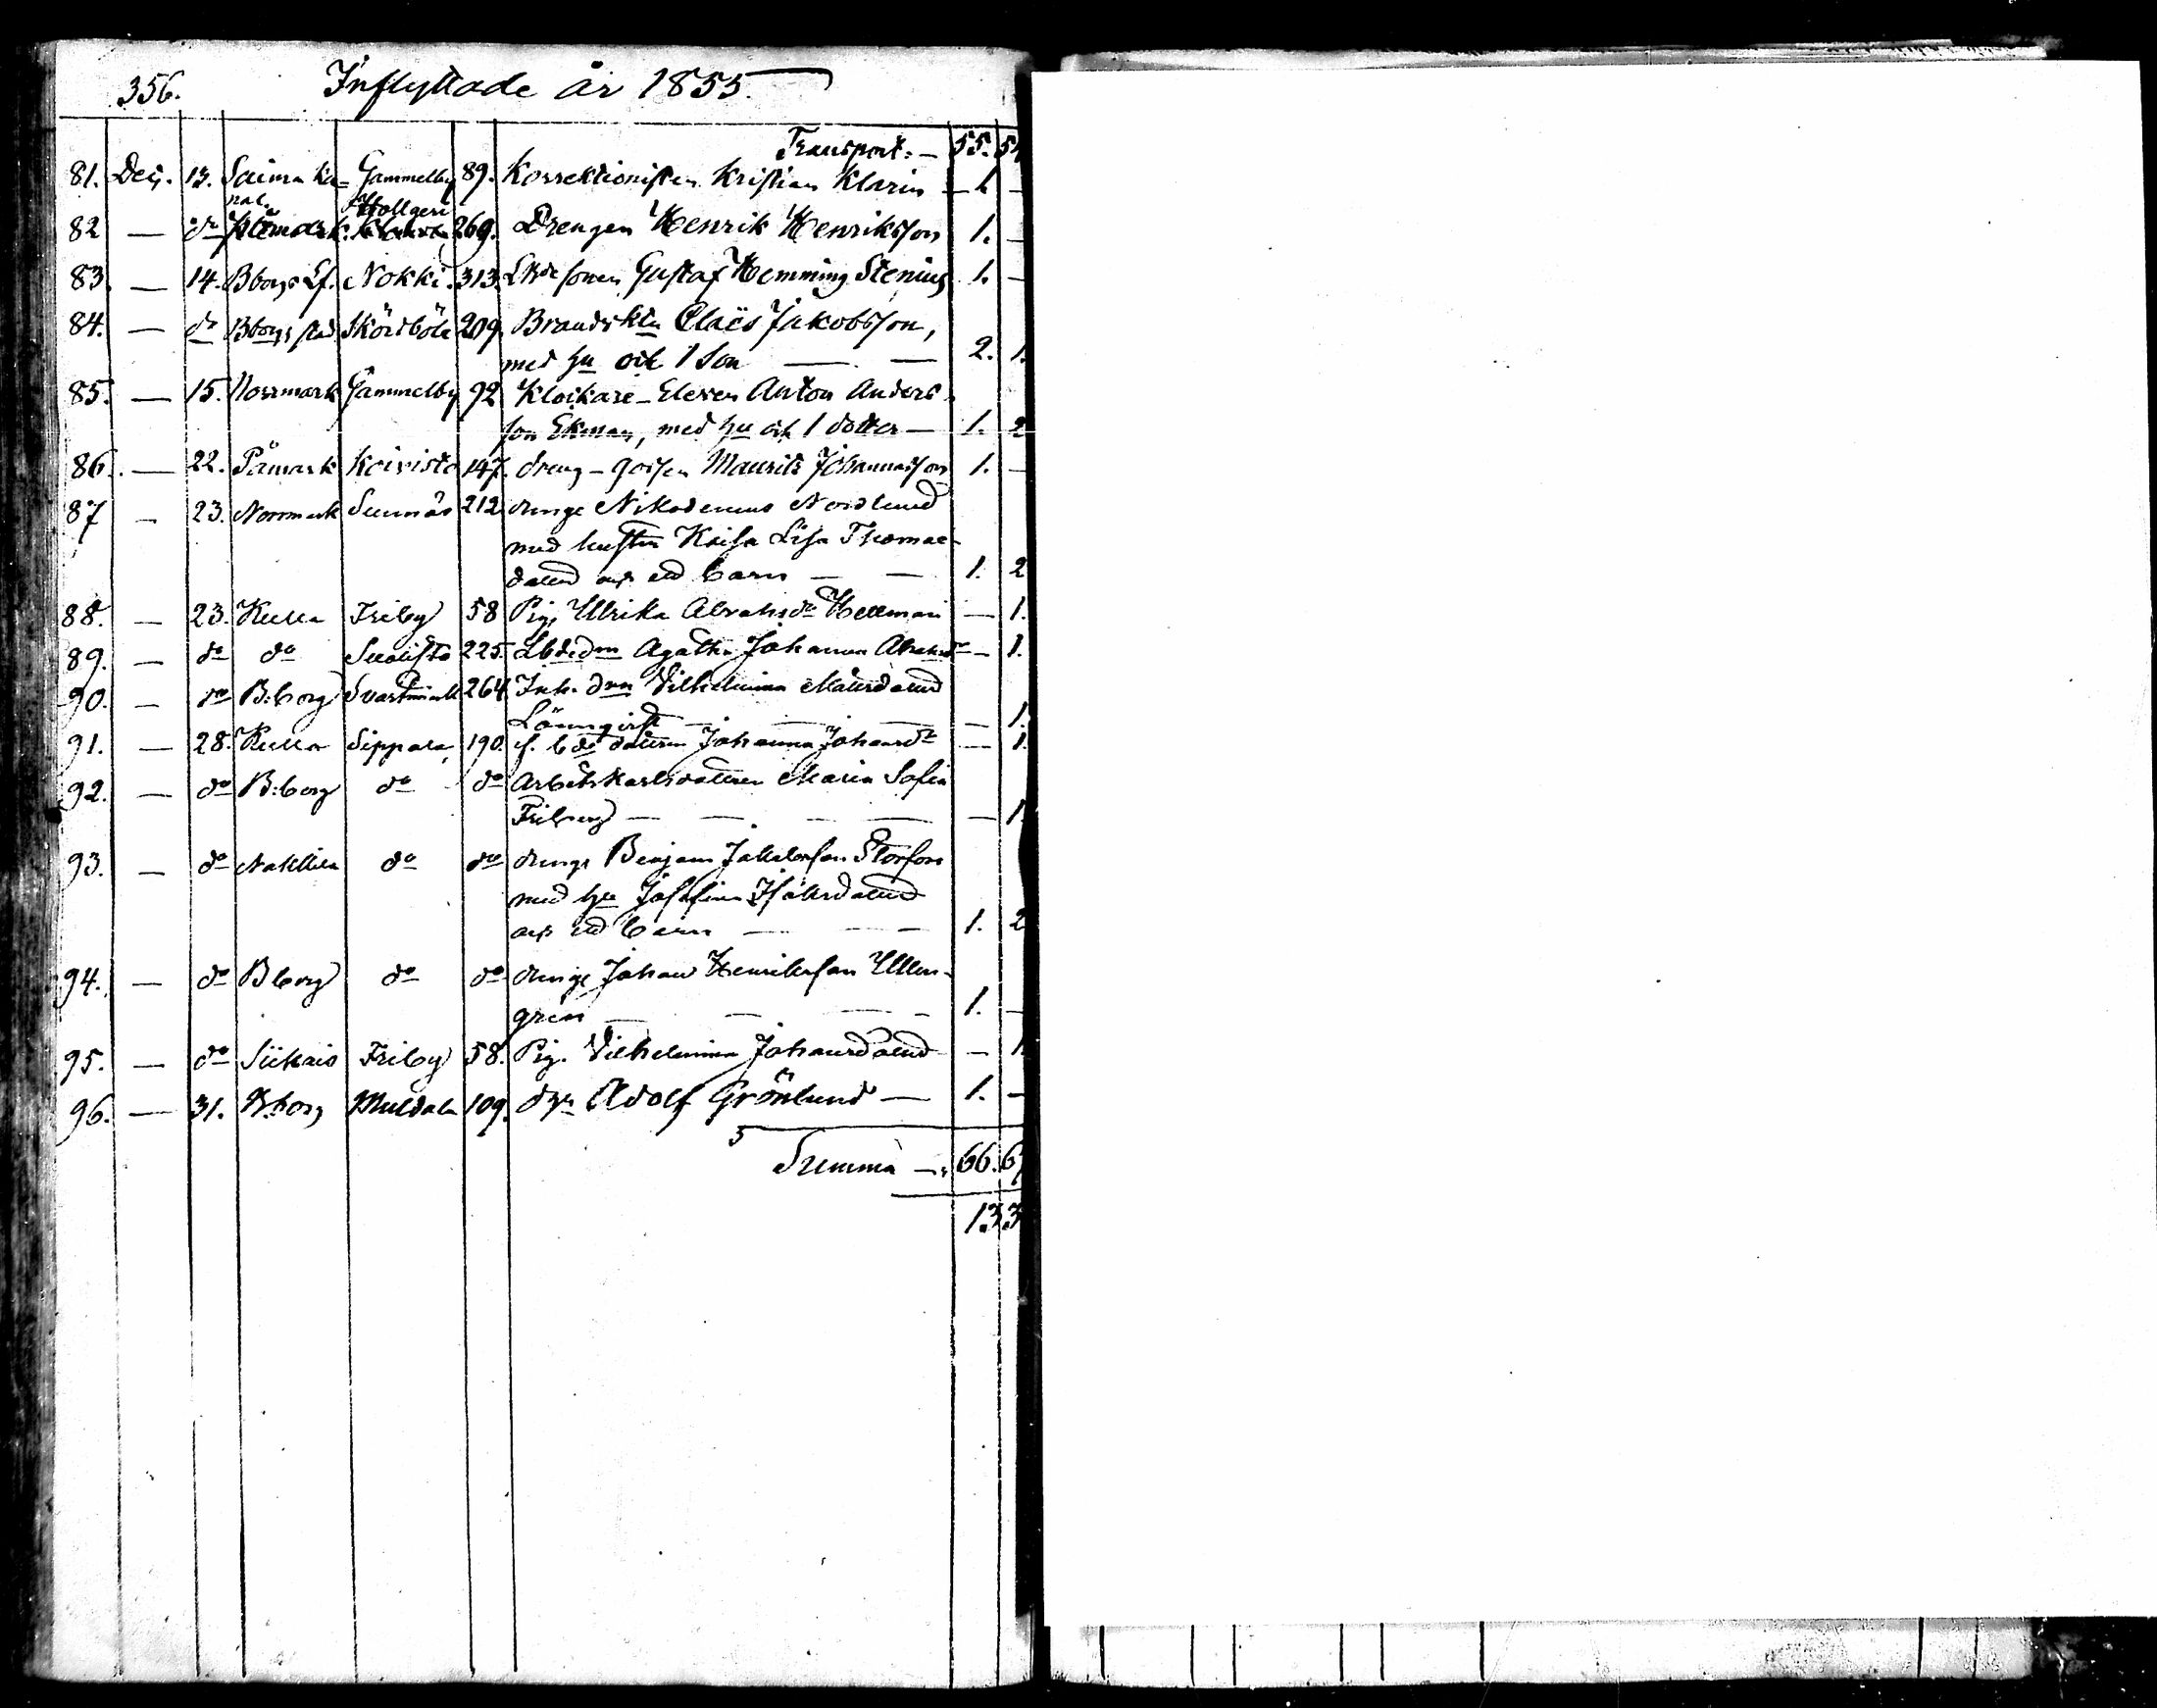 356. Inflyttade år 1855.
Transport: — 55. 54
81. Dec. 13. Saima Ka- Gammelby 89. Korrektionisten Kristian Klarin — 1. —
nal. Hollgeri
82 — do Påmark 269. Drengen Henrik Henriksson 1. —
83. — 14. Bborgs Lf. Nokki. 313. Gustaf Hemming Stenius 1. —
84. — do Bborgs stad Skördböle 209. Brandvktn Claës Jakobsson,
med hu och 1 Son — — 2. 1.
85. — 15. Norrmark Gammelby 92 Klockare-Eleven Anton Anders-
son Ekman, med hu och 1 dotter — 1. 2
86. — 22. Påmark Koivisto 147. dreng-gossen Maurits Johannesson 1. —
87 — 23. Norrmark Sunnäs 212 drnge Nikodemus Nordlund
med hustru Kaisa Lisa Thomae
och ett barn — — 1. 2
88. — 23. Kulla Friby 58 Pig. Ulrika Abrahsdr Hellman — 1.
89. — do do Suolisto 225. Agatha Johanna — 1.
90. — do B:borg Svartsmark 264 Inh. drn Vilhelmina
Lönnqvist — — — — 1.
91. — 28. Kulla Sippala 190. Johanna Johansdr — 1.
92. — do B:borg do do Arbetskarlsdottren Maria Sofia
Friberg — — — — — 1.
93. — do Nakkila do do drnge Benjam Storfors
med hu Josefina
och ett barn — — — 1. 2
94. — do Bborg do do drnge Johan Henriksson Ullen-
gren — — — 1. —
95. — do Siikais Friby 58. Pig. Vilhelmina — 1.
96. — 31. Bborg Muldala 109. drn Adolf Grönlund — 1. —
Summa — 66. 67
133